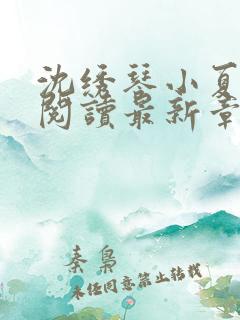 沈绣琴小夏
阅讀最新章
秦枭
未经同意禁止转载